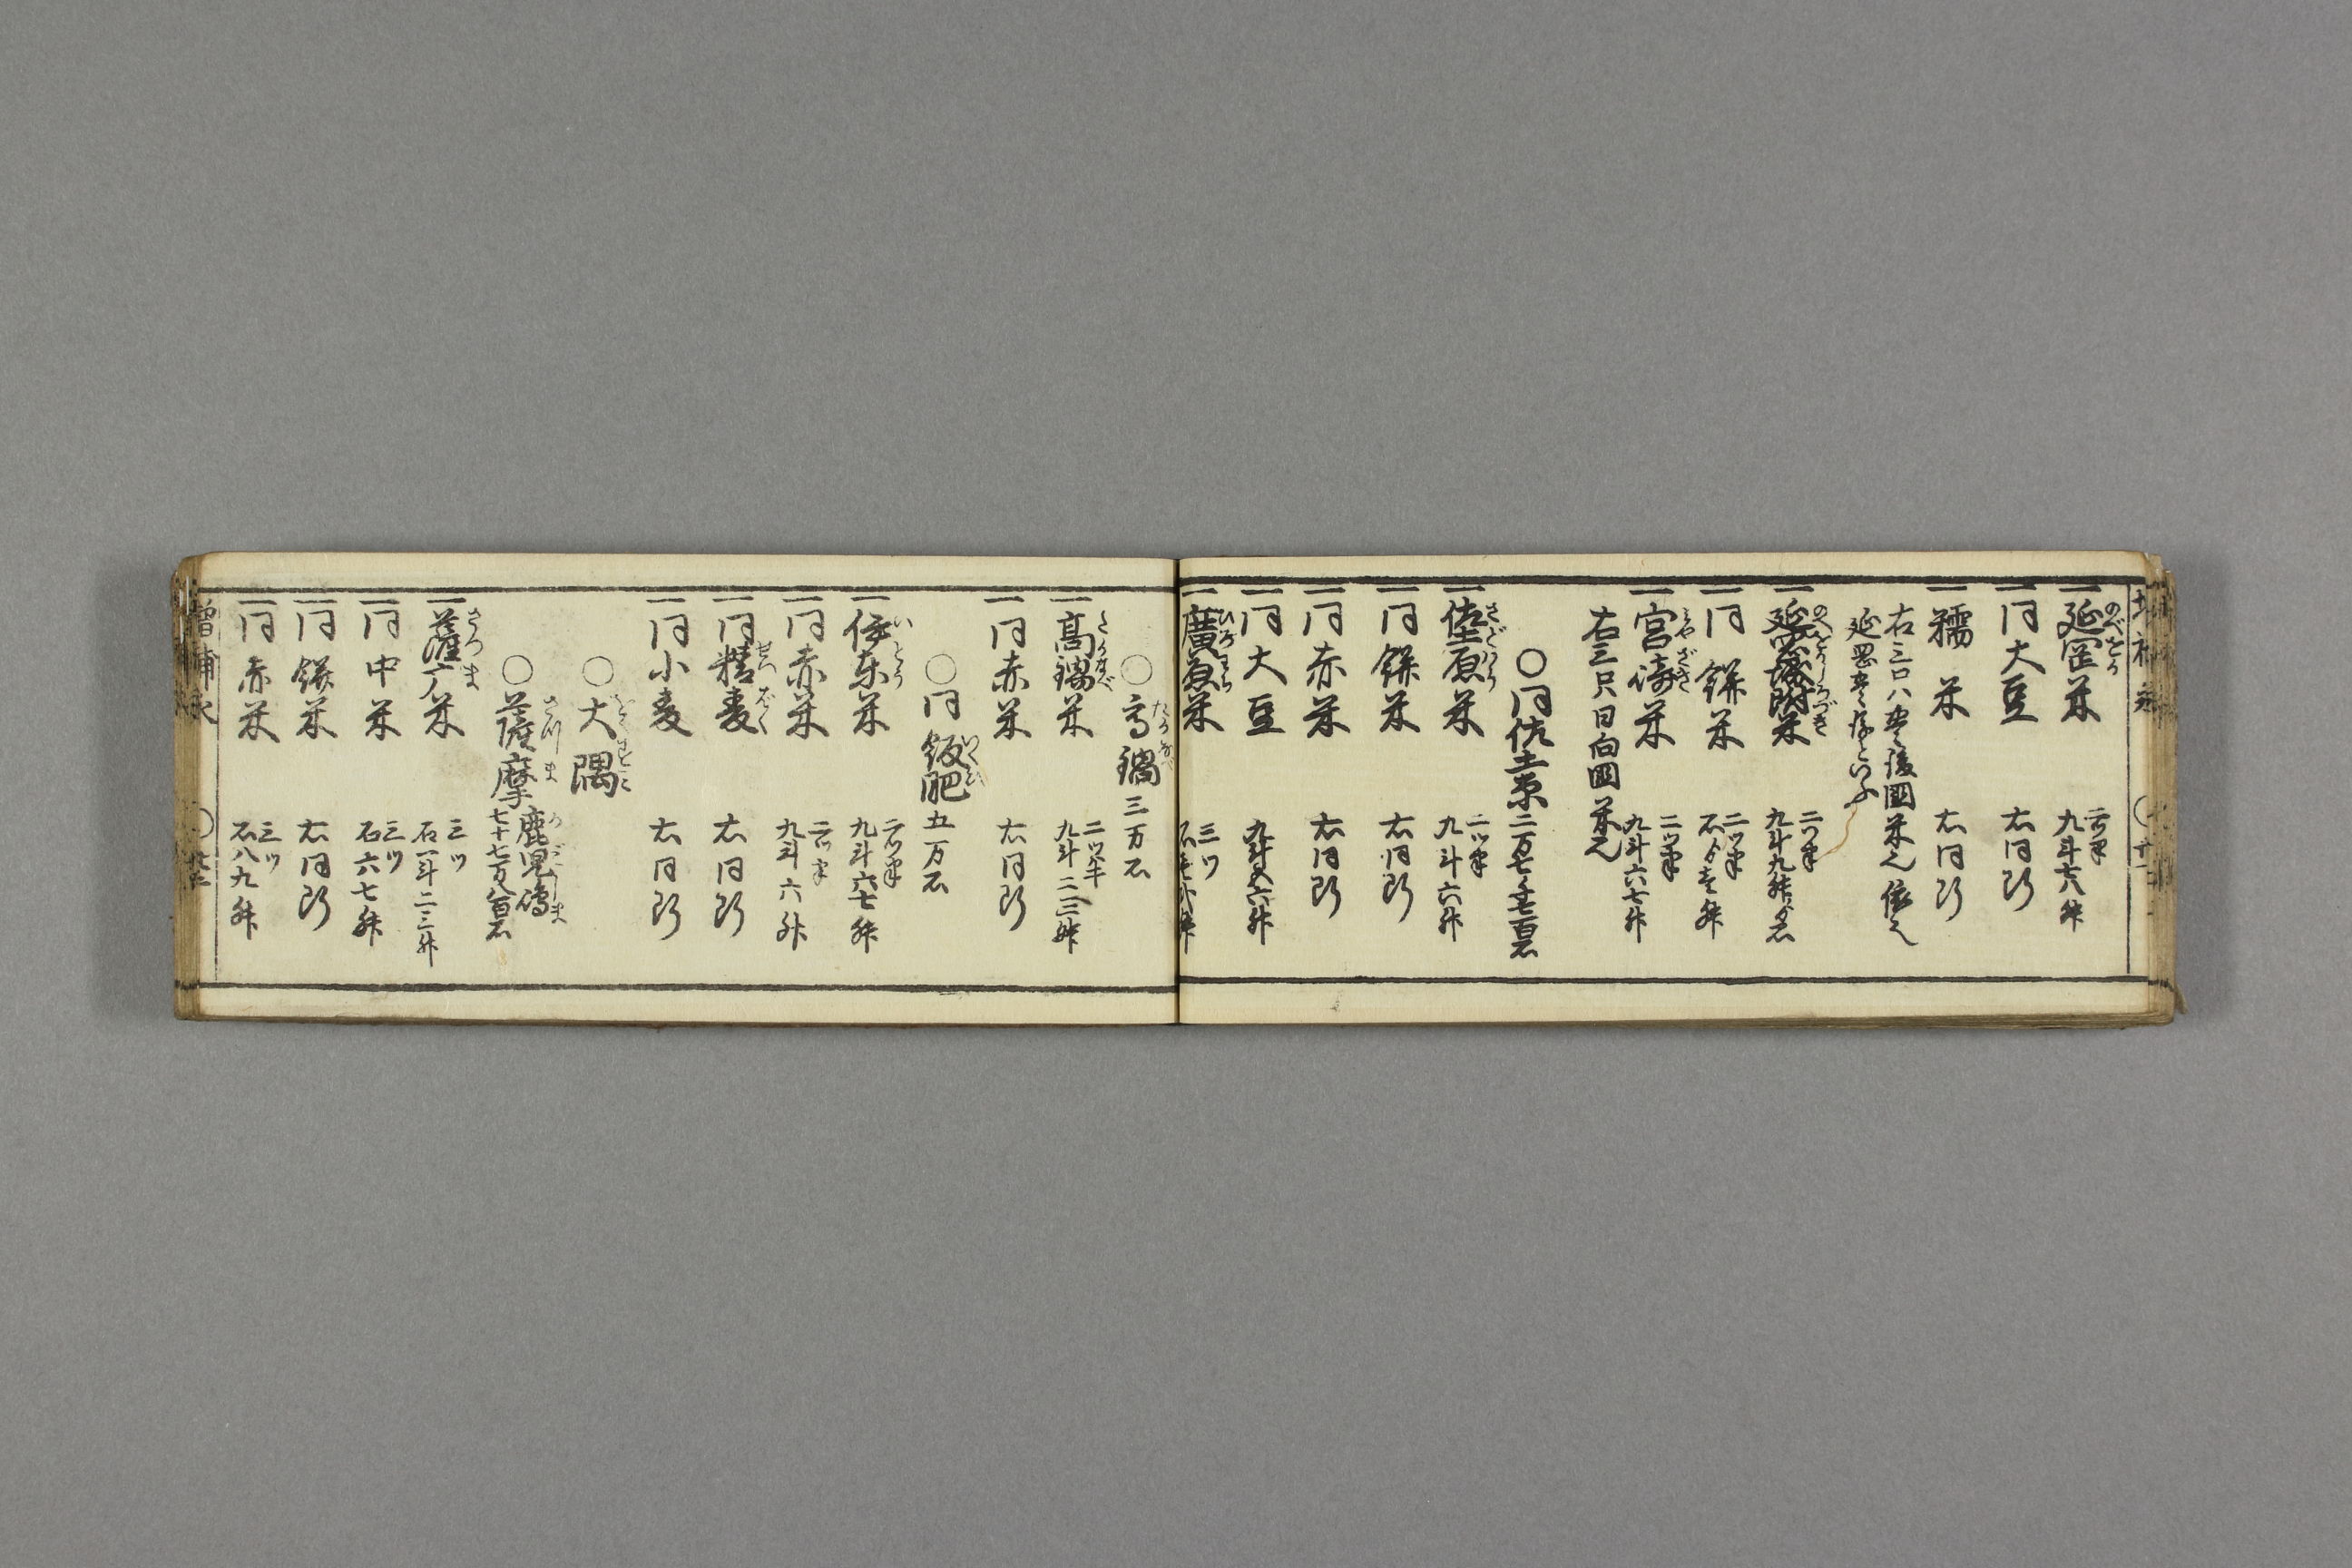 一延岡米 二ツ半 九斗七八舛
一同大豆 右同断
一糯米 右同断
右三口ハ豊後國米也依之
延岡豊後といふ
一延岡城附米 二ツ半 九斗九舛ゟ石
一同餅米 二ツ半 石ゟ壱舛
一宮崎米 二ツ半 九斗六七舛
右三口日向國米也
○同佐土原 二万七千七百石
一佐土原米 二ツ半 九斗六舛
一同餅米 右同断
一同赤米 右同断
一同大豆 九斗五六舛
一廣原米 三ツ
○高鍋 三万石
一高鍋米 二ツ半 九斗二三舛
一同赤米 右同断
○同飫肥 五万石
一伊東米 二ツ半 九斗六七舛
一同赤米 二ツ半 九斗六舛
一同精麦 右同断
一同小麦 右同断
○大隅
○薩摩 鹿児嶋 七十七万八百石
一薩广米 三ツ 石一斗二三舛
一同中米 三ツ 石六七舛
一同餅米 右同断
一同赤米 三ツ 石八九舛